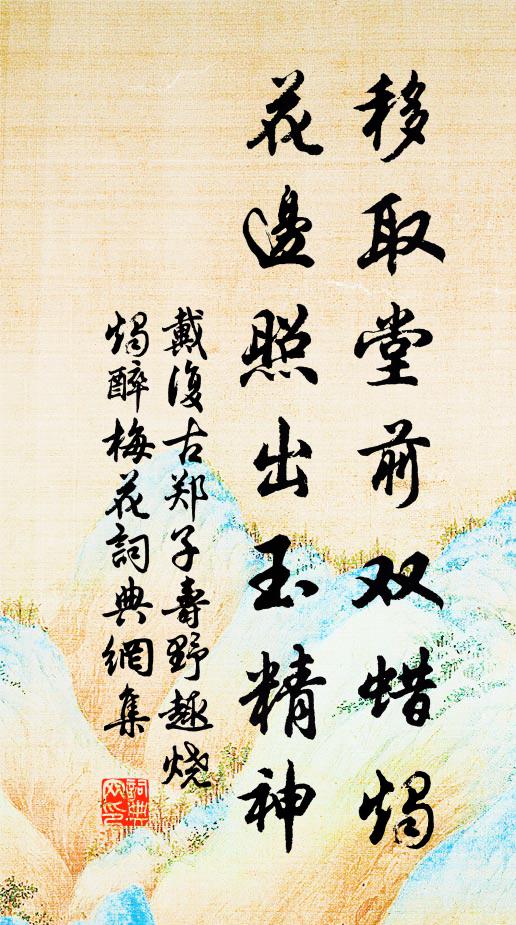 移取堂前双蜡烛
花邊照出玉精神
戴復古郑子壽野趣烧
燭醉梅花詞典網集
詞典網印